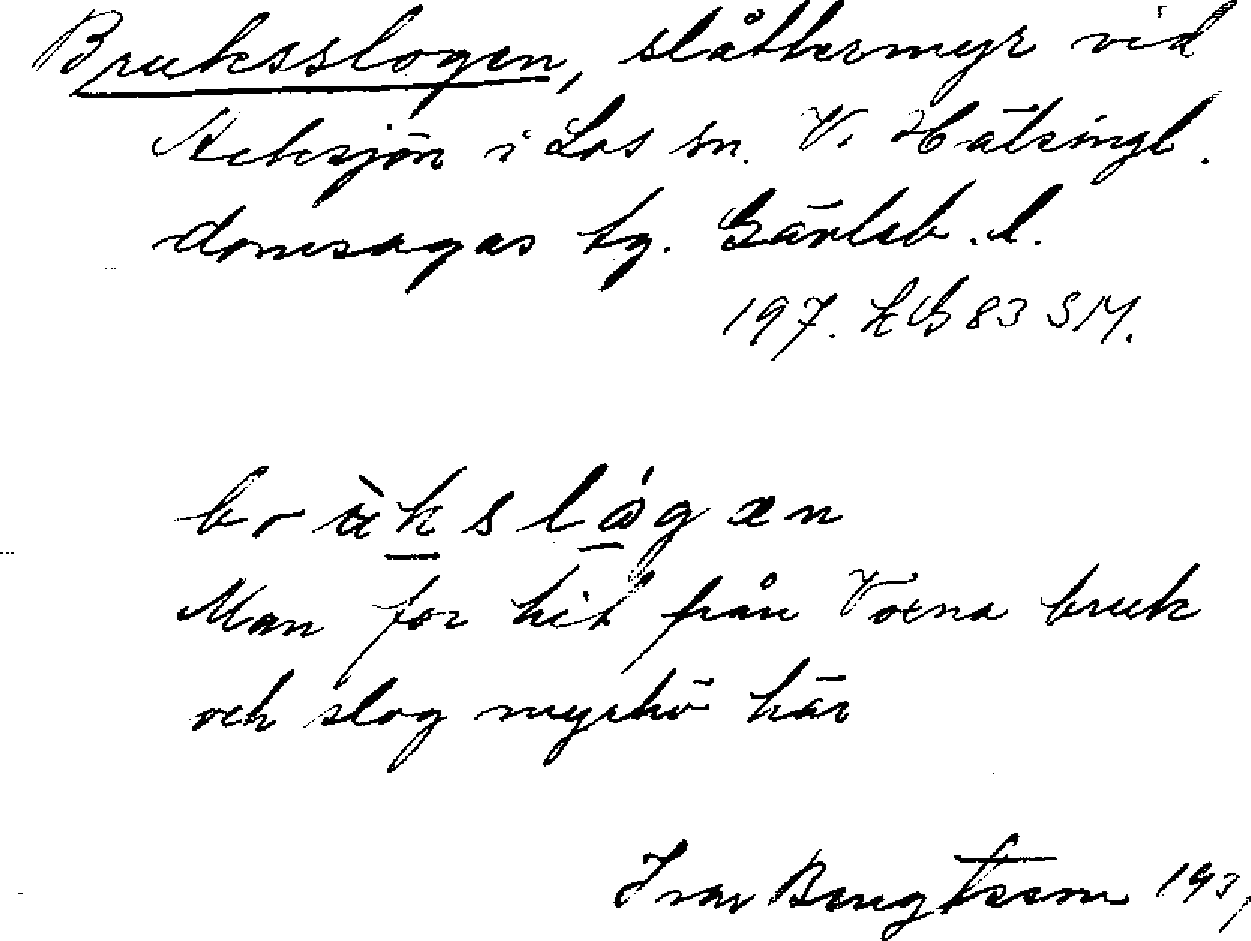 Bruksslogen, slåttermyr vid
i Los sn. V. Hälsingl.
domsagas tg. Gävleb. l.
197. KB 83 SM.
brukslogæn
Man for hit från Voxna bruk
och slog myrhö här
Ivar Bengtsson